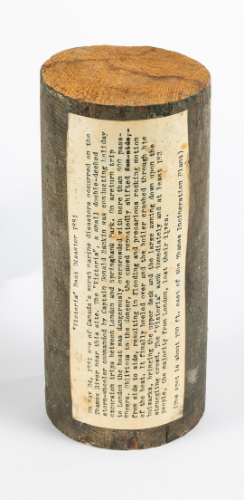 "Victoria" Boat Disaster 1881
On May 24, 1881 one of Canada's worst marine disasters occurred on the
Thames River near this site. The "Victoria", a small double-decked
stern-wheeler commanded by Captain Donald Rankin was conducting holiday
excursion trips between London and Springbank Park. On areturn trip
to London the boat was dangerously overcrowded with more than 600 pass-
engers. Oblivious to the danger, the crowd repeatedly shifted
from side to side, resulting in flooding and precarious rocking motion
of the boat. It finally heeled over and the boiler crashed through the
bulwarks, bringing the upper deck and the large awning down upon the
struggling crowd. The "Victoria" sank immediately and at least 182
people, the majority from London, lost their lives.
(The spot is about 370 ft. east of the Thames Incineration Plant)